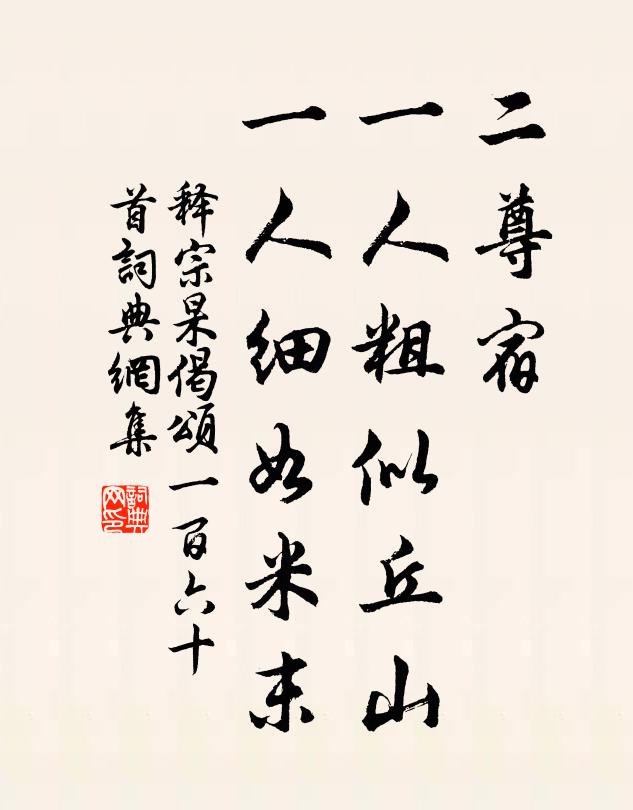 二尊宿
一人粗似丘山
一人细如米末
释宗杲偈頌一百六十
首詞典網集
詞典
网印